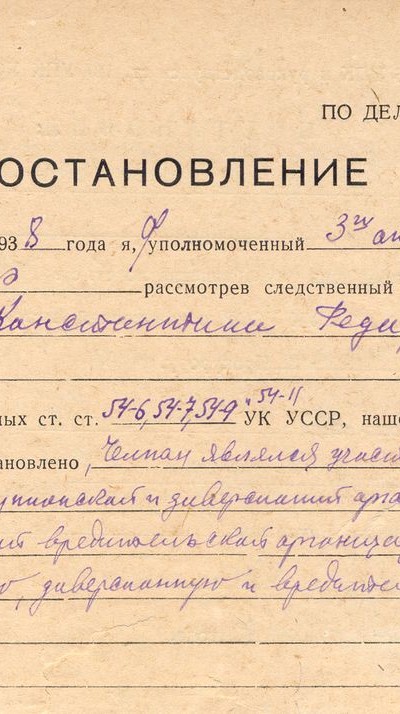 ПО ДЕЛ
ОСТАНОВЛЕНИЕ
938 года я, уполномоченный 3го
рассмотрев следственный
Константина Феди
ных ст. ст. 54-6, 54-7, 54-9 "54-11 УК УССР, наш
ановлено, Чепан являлся участ
шпионской и диверсионной орга
вредительской организа
диверсионную и вредител